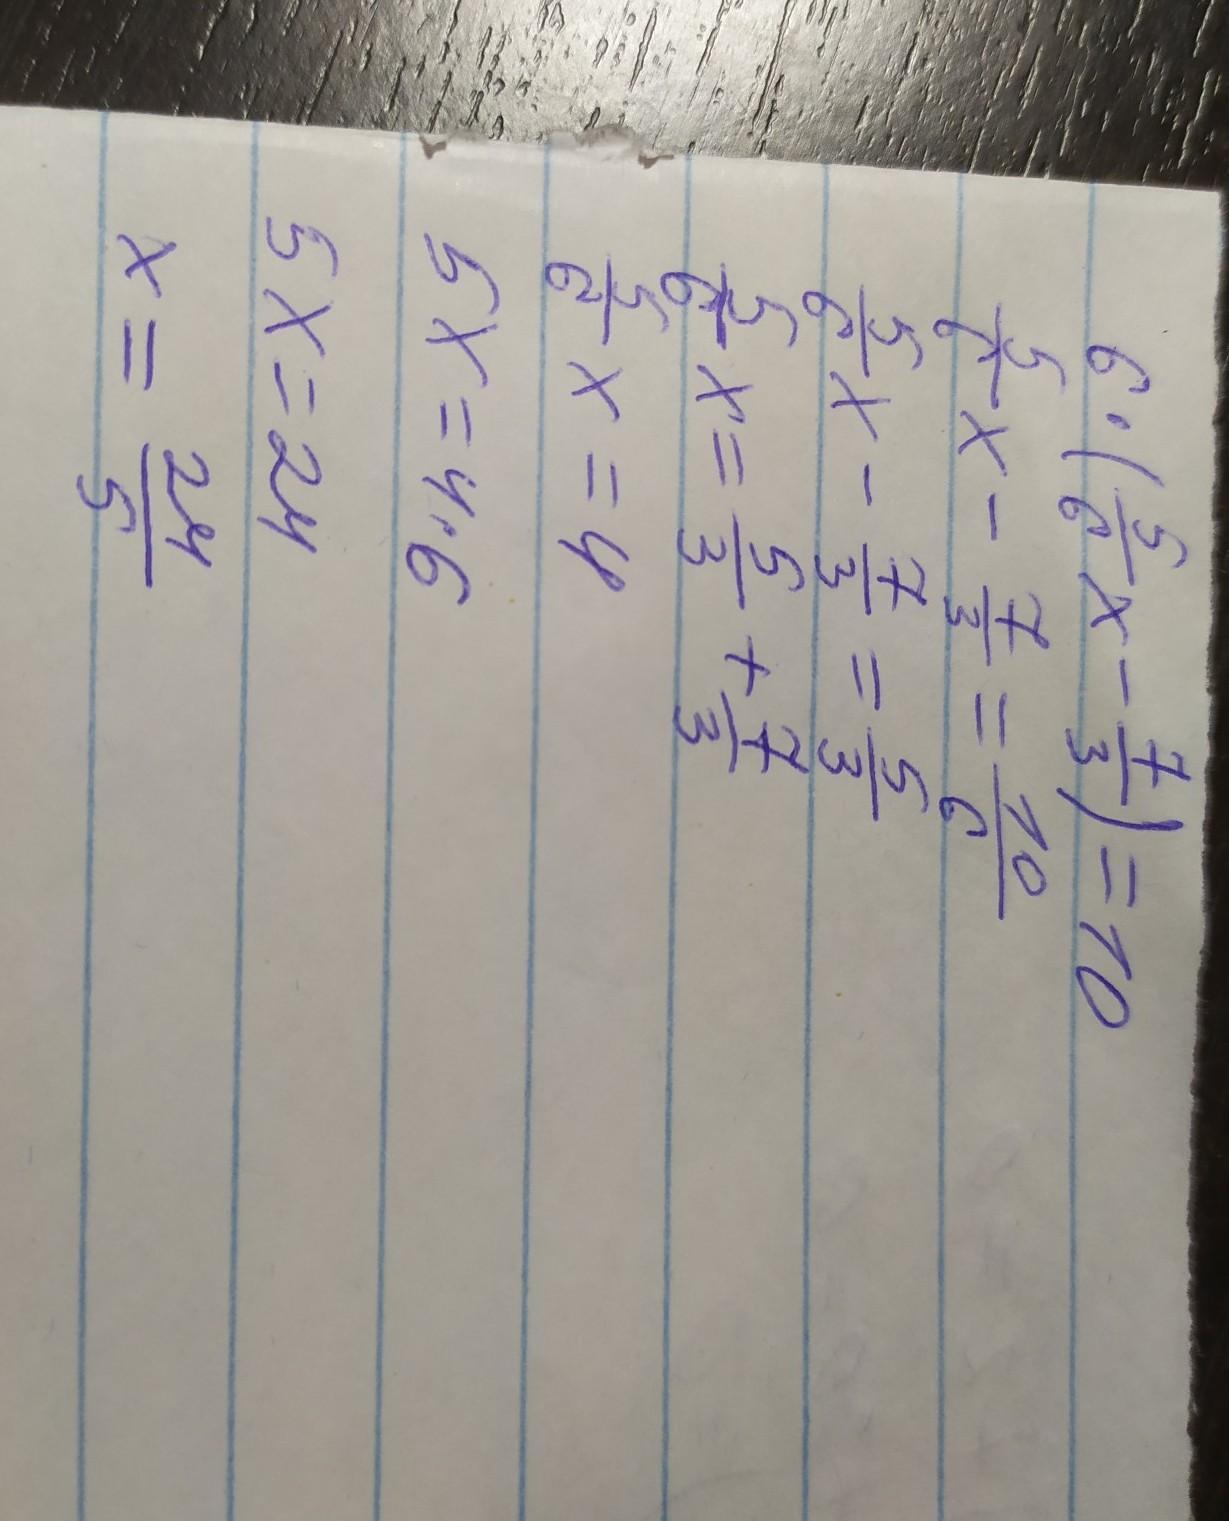 6·(5/6 x - 7/3) = 10
5/6 x - 7/3 = 10/6
5/6 x - 7/3 = 5/3
5/6 x = 5/3 + 7/3
5/6 x = 4
5x = 4·6
5x = 24
x = 24/5